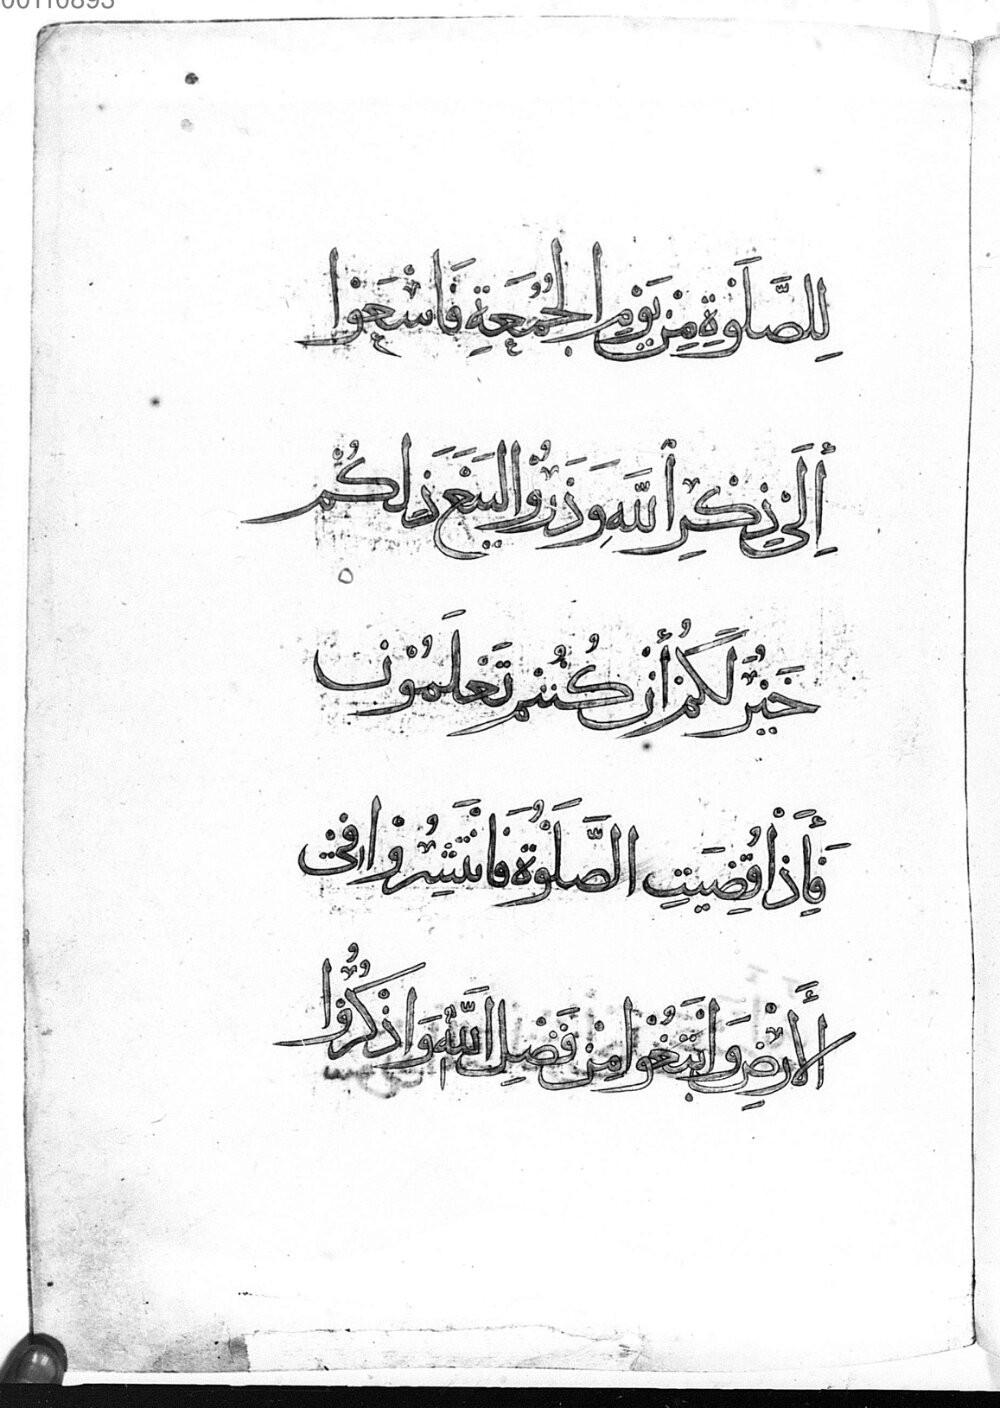 00110893
لِلصَّلَوٰةِ مِنْ يَوْمِ الْجُمُعَةِ فَاسْعَوْا
إِلَىٰ ذِكْرِ اللَّهِ وَذَرُوا الْبَيْعَ ذَٰلِكُمْ
خَيْرٌ لَكُمْ أَنْ كُنْتُمْ تَعْلَمُونَ
فَإِذَا قُضِيَتِ الصَّلَوٰةُ فَانْتَشِرُوا فِى
الْأَرْضِ وَابْتَغُوا مِنْ فَضْلِ اللَّهِ وَاذْكُرُوا